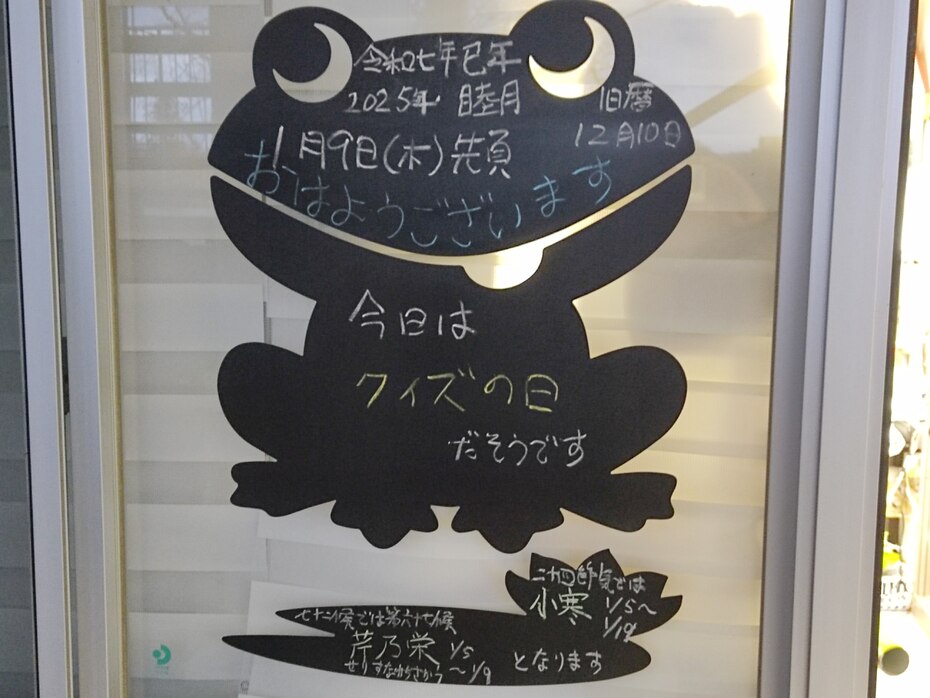 令和七年巳年
2025年 睦月
旧暦
12月10日
1月9日(木)先負
おはようございます
今日は
クイズの日
だそうです
二十四節気では
小寒 1/5〜
1/19
七十二候では第六十七候
芹乃栄 1/5
せりすなわちさかう 〜1/9
となります